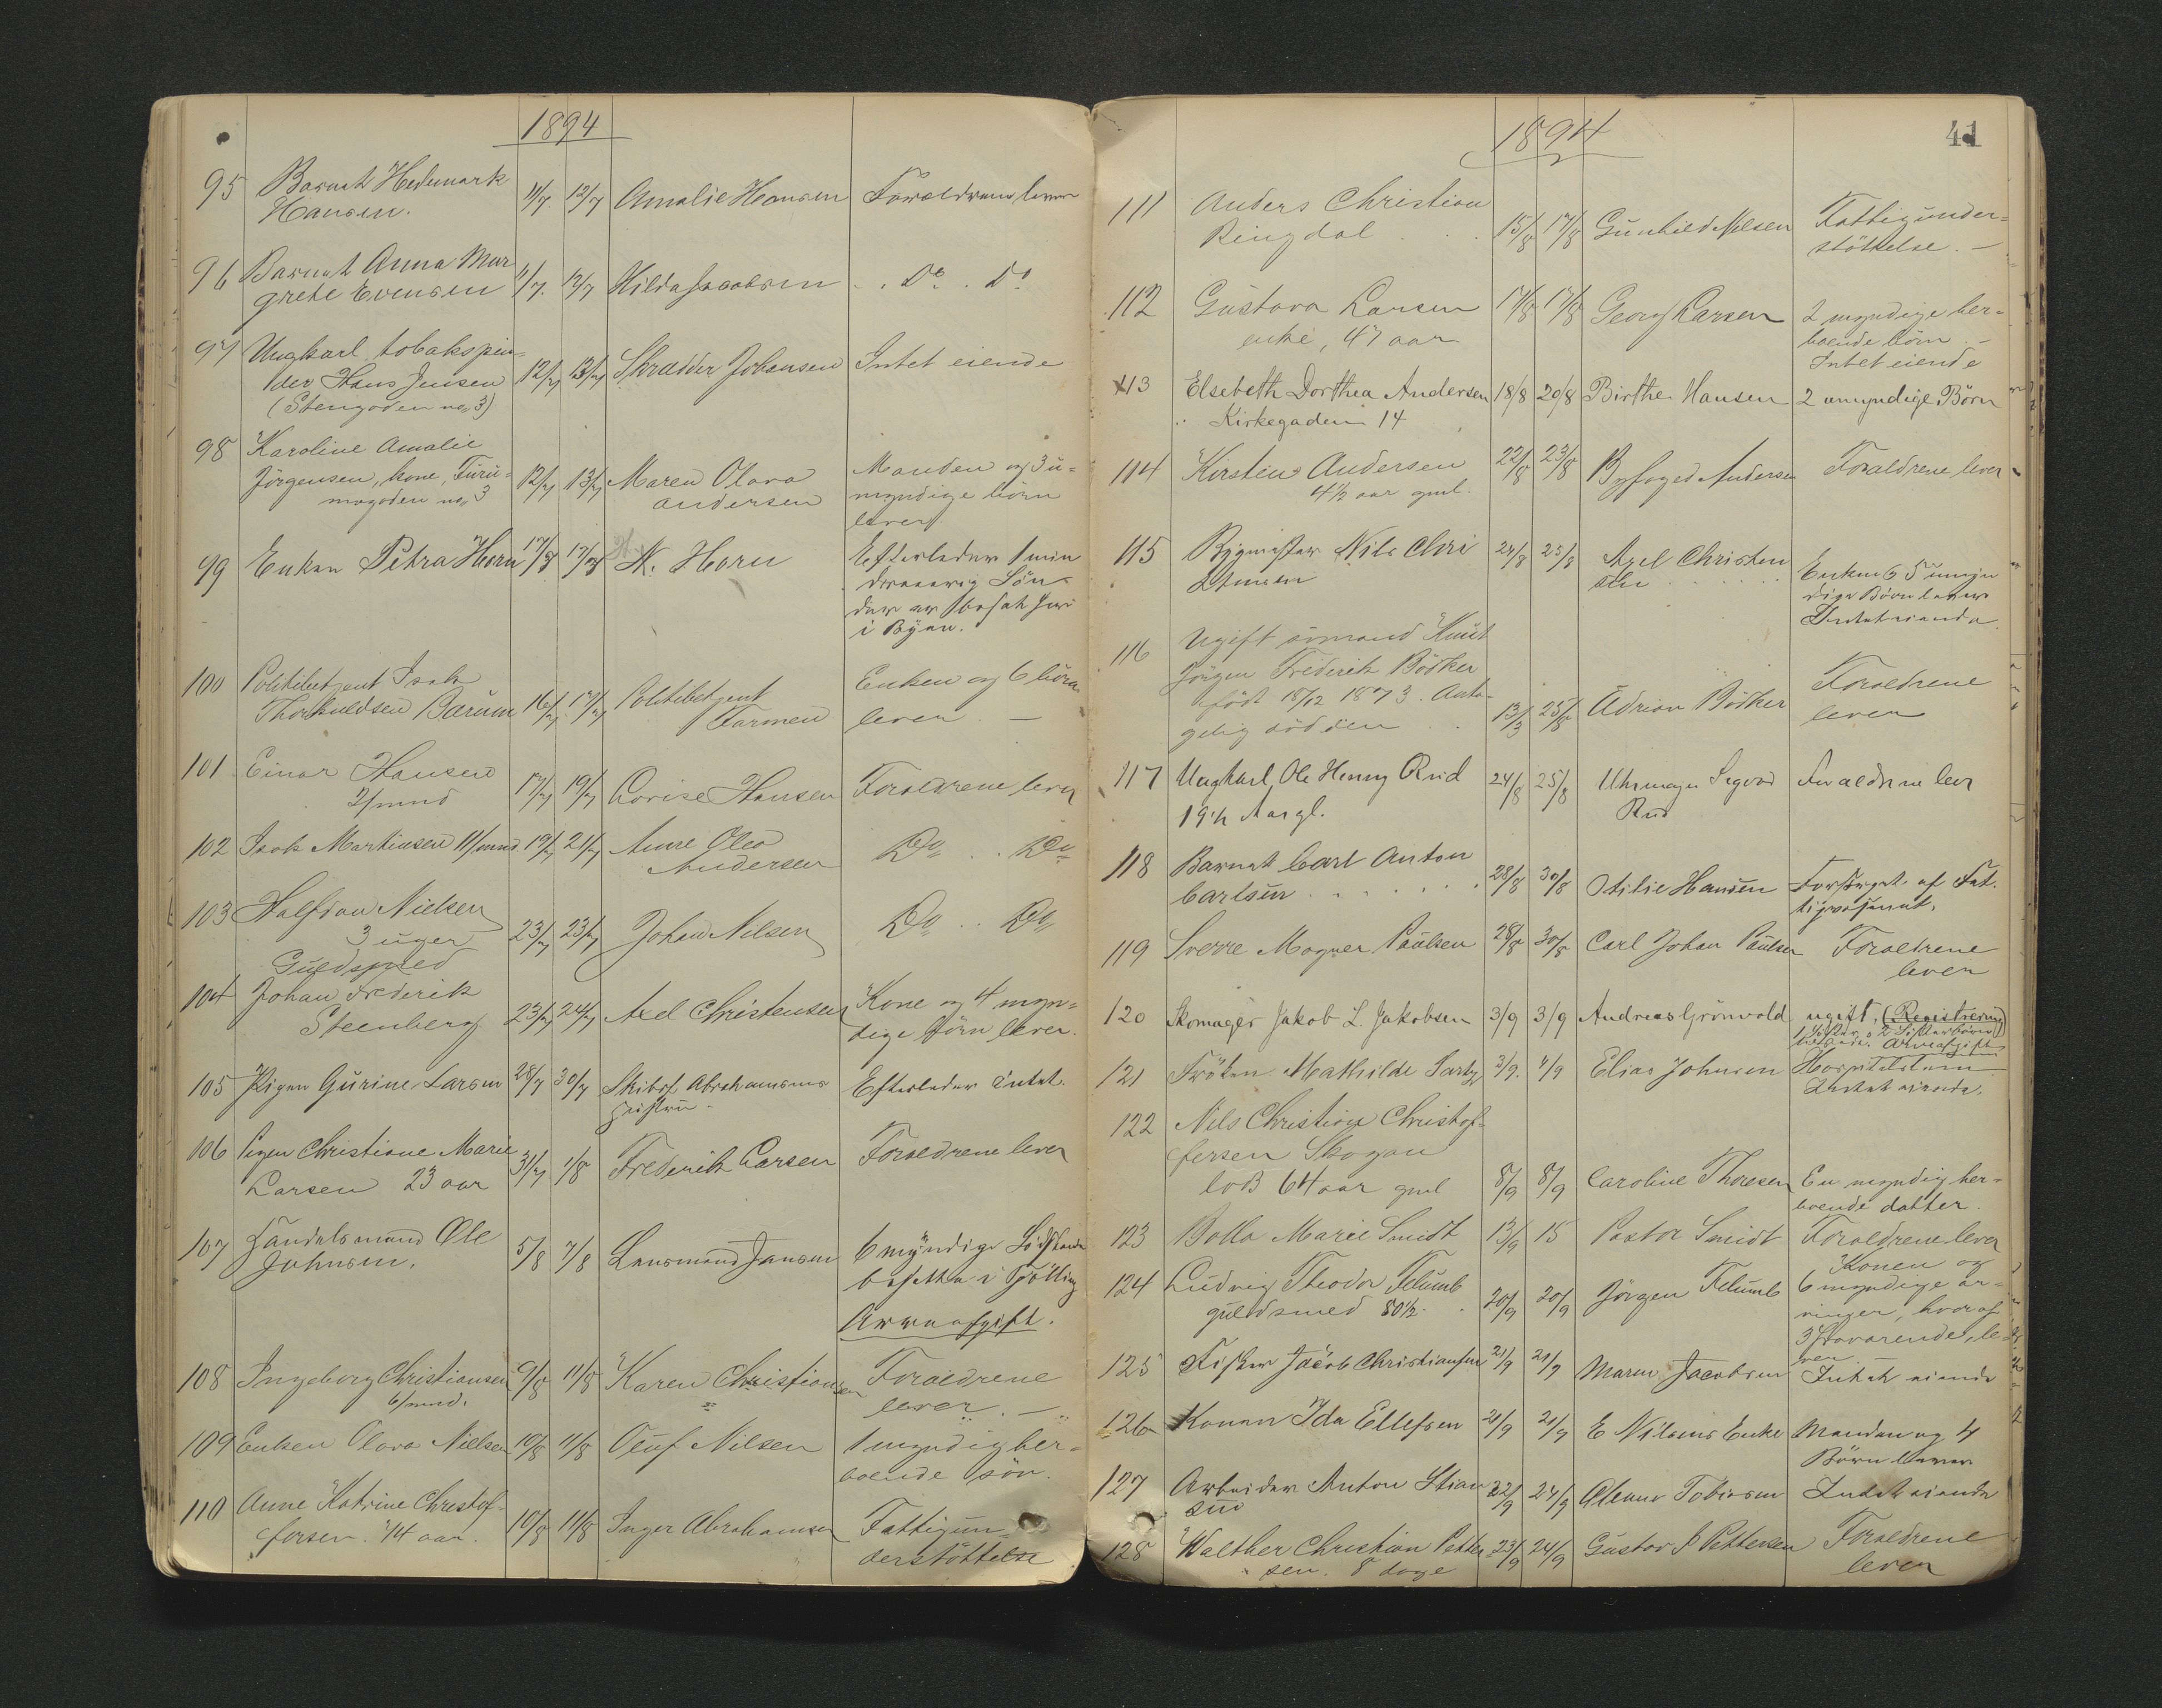 1894
95 Barnet Hedemark 11/7. 12/7 Amalie Hansen Foraeldrene lever
Hansen.
96 Barnet Anna Mar
grete Evensen 11/7. 12/7 Hilda Jacobsen . . Do . Do
97 Ungkarl tobakspin-
der Hans Jensen 12/7 13/7 Skrædder Johansen Intet eiende
(Stengaden no 3)
98 Karoline Amalie
Jörgensen, kone, Furu- 12/7 13/7 Maren Olava Manden og 3 u-
mogaden no 3 Andersen myndige börn
lever
99 Enken Petra Horn 17/7 17/7 N. Horn Efterlader 1 min
dreaarig Sön
der er bosat her
i Byen.
100 Politibetjent Isak Enken og 6 börn
Thorkuldsen Bærum 16/7. 17/7 Politibetjent lever —
Farmen
101 Einar Hansen
2/mnd 17/7 19/7 Lovise Hansen Foraeldrene lever
102 Isak Martinsen 11/mnd. 19/7 21/7 Anne Olea Do . . Do
Andersen
103 Halfdan Nielsen
3 uger 23/7 23/7 Johan Nilsen Do . . Do
Guldsmed
104 Johan Frederik Kone og 4 myn-
Steenberg 23/7 24/7 Axel Christensen dige börn lever.
105 Pigen Gurine Larsen 28/7 30/7 Skibsf. Abrahamsens Efterlader intet.
Hustru
106 Pigen Christiane Marie
Larsen 23 aar 31/7 1/8 Frederik Larsen Foraeldrene lever
107 Handelsmand Ole 5/8 7/8 Lensmand Jansen 6 myndige Södskende
Johnsen. bosatte i Tjölling
Arveafgift.
108 Ingeborg Christiansen 9/8 11/8 Karen Christiansen Foraeldrene
6/mnd. lever. —
109 Enken Olava Nielsen 10/8 11/8 Oluf Nilsen 1 myndig her-
boende sön.
110 Anne Katrine Christof-
fersen. 74 aar. 10/8 11/8 Inger Abrahamsen Fattigun-
derstöttelse
1894
41
111 Anders Christian
Ringdal . . . 15/8 17/8 Gunhild Nilsen Fattigunder-
stöttelse. —
112 Gustava Larsen 17/8 17/8 Georg Larsen 2 myndige her-
enke, 47 aar boende börn. —
Intet eiende
113 Elsebeth Dorthea Andersen 18/8 20/8 Birthe Hansen 2 umyndige Börn
Kirkegaden 14
114 Kirstine Andersen 22/8 23/8 Byfoged Andersen Foraeldrene lever
4 1/2 aar gml.
115 Bygmester Nils Chri 24/8 25/8 Axel Christen
stensen sen Enken & 5 umyn
dige Börn lever
Intet eiende.
116 Ugift sömand Knut
Jörgen Frederik Bödker
födt 18/12 1873. Anta- 13/3 25/8 Adrian Bödker Foraeldrene
gelig död den lever
117 Ungkarl Ole Henry Rud 24/8 25/8 Uhrmager Sigvard Foraeldrene lever
19 1/2 Aar gl. Rud
118 Barnet Carl Anton
Carlsen . . . . . . 28/8 30/8 Otilie Hansen Forsörget af Fat-
tigvæsenet.
119 Sverre Magner Paulsen 28/8 30/8 Carl Johan Paulsen Foraeldrene
lever
120 Skomager Jakob L. Jakobsen 3/9 3/9 Andreas Grönvold ugift, (Registrering)
1 Söster, 2 Sösterbörn
Arveafgift
121 Fröken Mathilde Sartz 3/9. 4/9 Elias Johnsen Hospitalslem
Intet eiende.
122 Nils Christian Christof-
fersen Skogan
lods 64 aar gml 8/9 8/9 Caroline Thoresen En myndig her-
boende datter.
123 Bolla Marie Smidt 13/9 15 Pastor Smidt Foraeldrene lever
124 Ludvig Theodor Flumb Konen og
guldsmed 80 1/2. 20/9 20/9 Jörgen Flumb 6 myndige ar-
vinger, hvoraf
3 fraværende, le-
ver
125 Fisker Jacob Christiansen 21/9 21/9 Maren Jacobsen Intet eiende
126 Konen Ida Ellefsen 21/9 21/9 E Nilsens Enke Manden og 4
Börn lever
127 Arbeider Anton Stian 22/9 24/9 Oleane Tobiasen Intet eiende
sen
128 Walther Christian Petter 23/9 24/9 Gustav P Pettersen Foraeldrene
sen. 8 dage lever